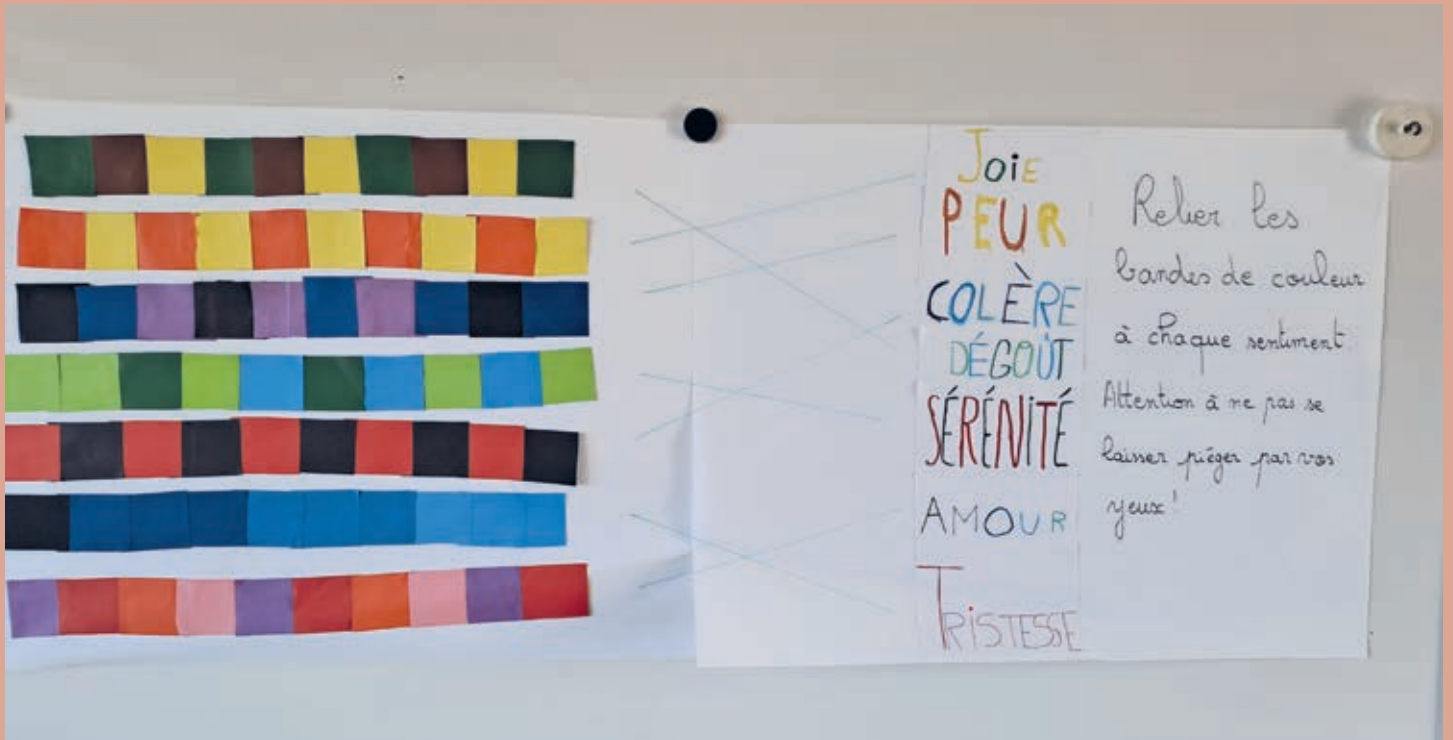 Joie
PEUR
COLÈRE
DÉGOÛT
SÉRÉNITÉ
AMOUR
TRISTESSE
Relier les
bandes de couleur
à chaque sentiment.
Attention à ne pas se
laisser piéger par vos
yeux!